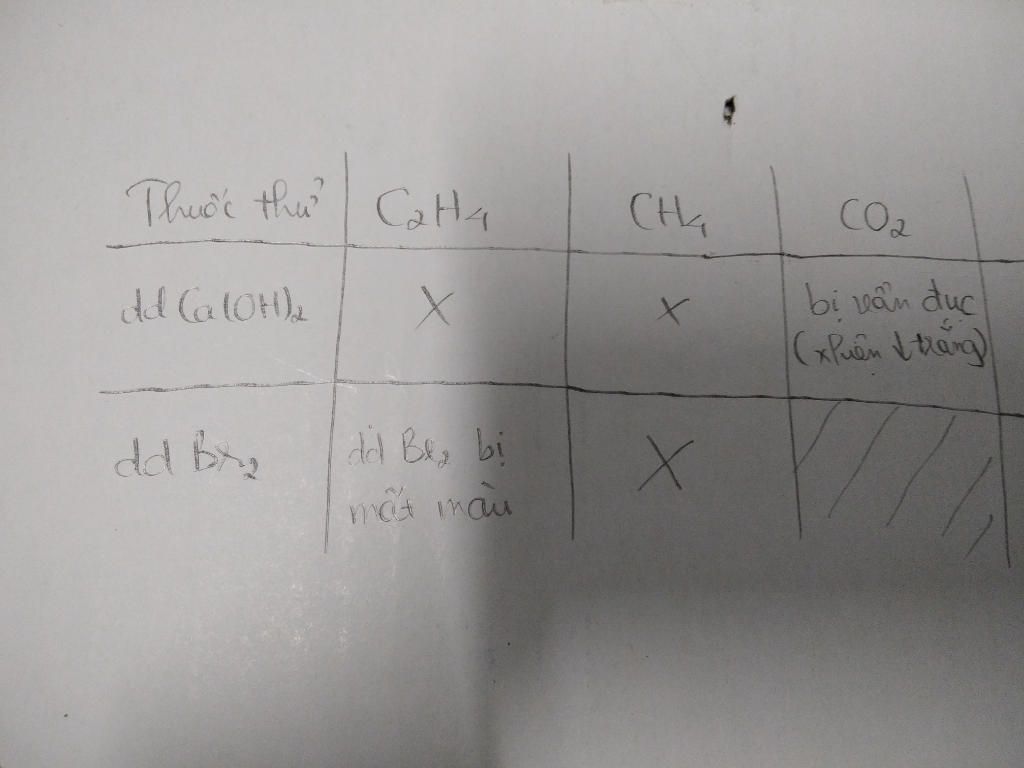 Thuốc thử C₂H₄ CH₄ CO₂
dd Ca(OH)₂ X X bị vẩn đục
(xhiện ↓ trắng)
dd Br₂ dd Br₂ bị X
mất màu